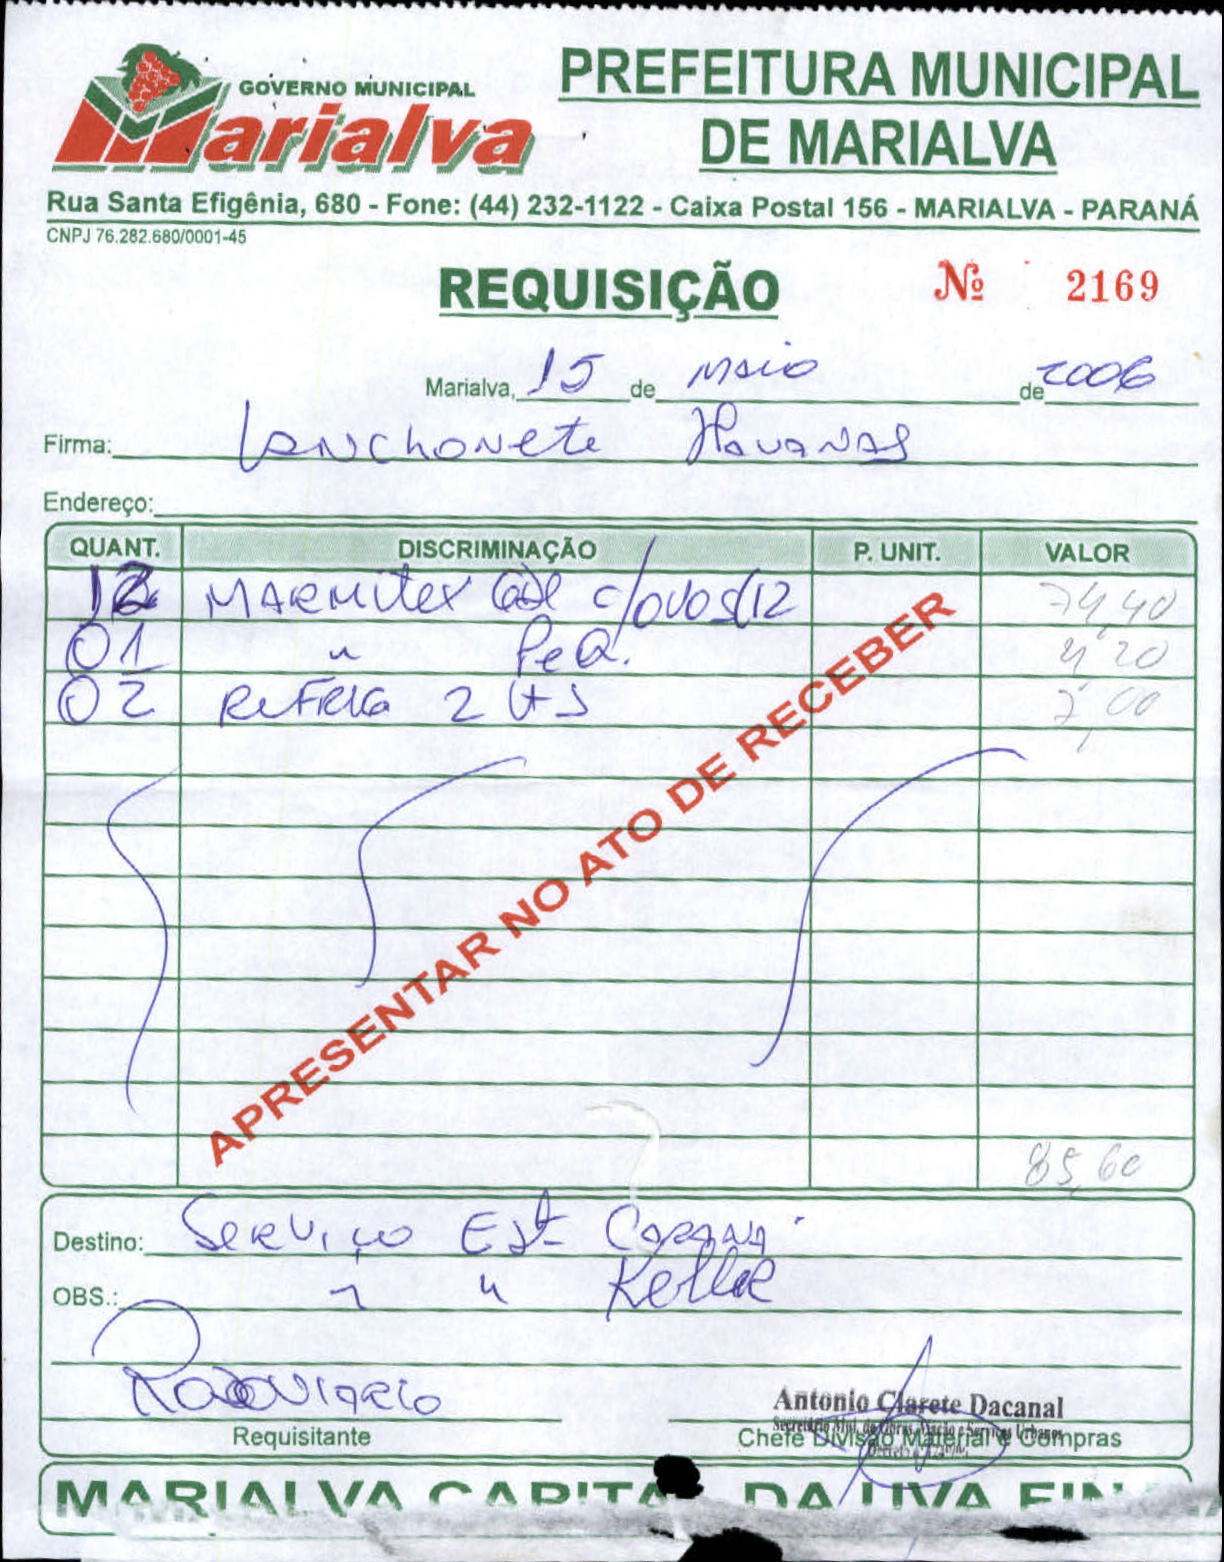 GOVERNO MUNICIPAL
Marialva
PREFEITURA MUNICIPAL
DE MARIALVA
Rua Santa Efigênia, 680 - Fone: (44) 232-1122 - Caixa Postal 156 - MARIALVA - PARANÁ
CNPJ 76.282.680/0001-45
REQUISIÇÃO Nº 2169
Marialva, 15 de Maio de 2006
Firma: Lanchonete Havanas
Endereço:
QUANT. DISCRIMINAÇÃO P. UNIT. VALOR
12 MARMitex c/ovos 12 74,40
01 " PeQ. 4,20
02 ReFRIG 2 Lts 7,00
APRESENTAR NO ATO DE RECEBER
85,60
Destino: Serviço Est
OBS.: " " Keller
Rodoviario
Antonio Clarete Dacanal
Requisitante Chefe Divisão Material e Compras
MARIALVA CAPITAL DA UVA FINA